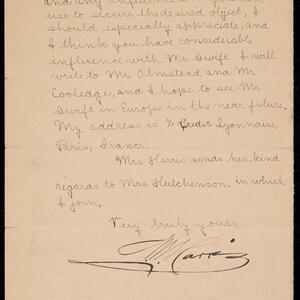 and any influence you can
use to secure the desired object, I
should especially appreciate, and
I think you have considerable
influence with Mr. Swift. I will
write to Mr. Olmstead and Mr
Cooledge, and I hope to see Mr
Swift in Europe in the near future.
My address is % Credit Lyonnaise,
Paris, France.
Mrs. Harris sends her kind
regards to Mrs. Hutchenson, in which
I join,
Very truly yours
Harris